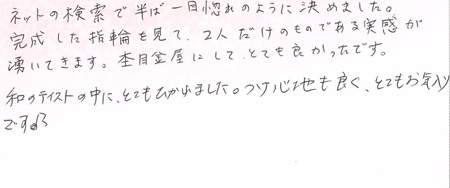 ネットの検索で半ば一目惚れのように決めました。
完成した指輪を見て、2人だけのものである実感が
湧いてきます。杢目金屋にして、とても良かったです。
和のテイストの中に、とてもひかれました。つけ心地も良く、とてもお気に入り
です♪